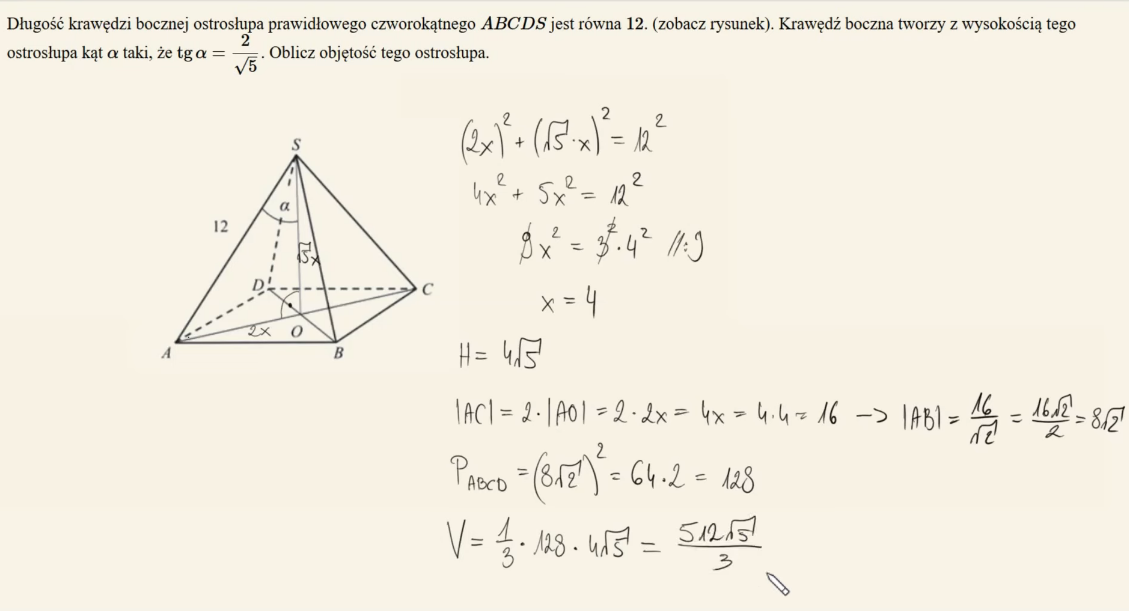 Długość krawędzi bocznej ostrosłupa prawidłowego czworokątnego ABCDS jest równa 12. (zobacz rysunek). Krawędź boczna tworzy z wysokością tego
ostrosłupa kąt α taki, że tg α = 2/√5. Oblicz objętość tego ostrosłupa.
S
α
12
√5x
D
C
2x
O
A
B
(2x)² + (√5·x)² = 12²
4x² + 5x² = 12²
9x² = 3²·4² //:9
x = 4
H = 4√5
|AC| = 2·|AO| = 2·2x = 4x = 4·4 = 16 -> |AB| = 16/√2 = 16√2/2 = 8√2
P_ABCD = (8√2)² = 64·2 = 128
V = 1/3 · 128 · 4√5 = 512√5/3